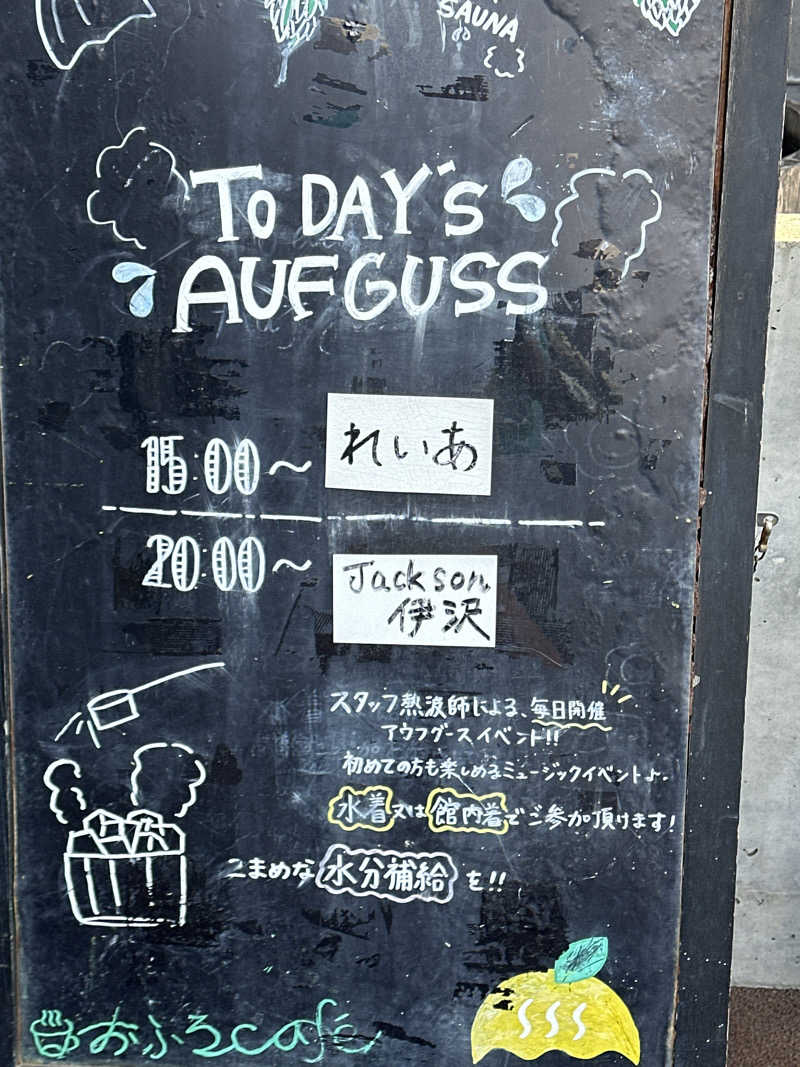 SAUNA
TODAY'S
AUFGUSS
15:00～ れいあ
20:00～ Jackson
伊沢
スタッフ熱波師による、毎日開催
アウフグースイベント!!
初めての方も楽しめるミュージックイベント♪
水着又は館内着でご参加頂けます!
こまめな水分補給を!!
おふろcafé